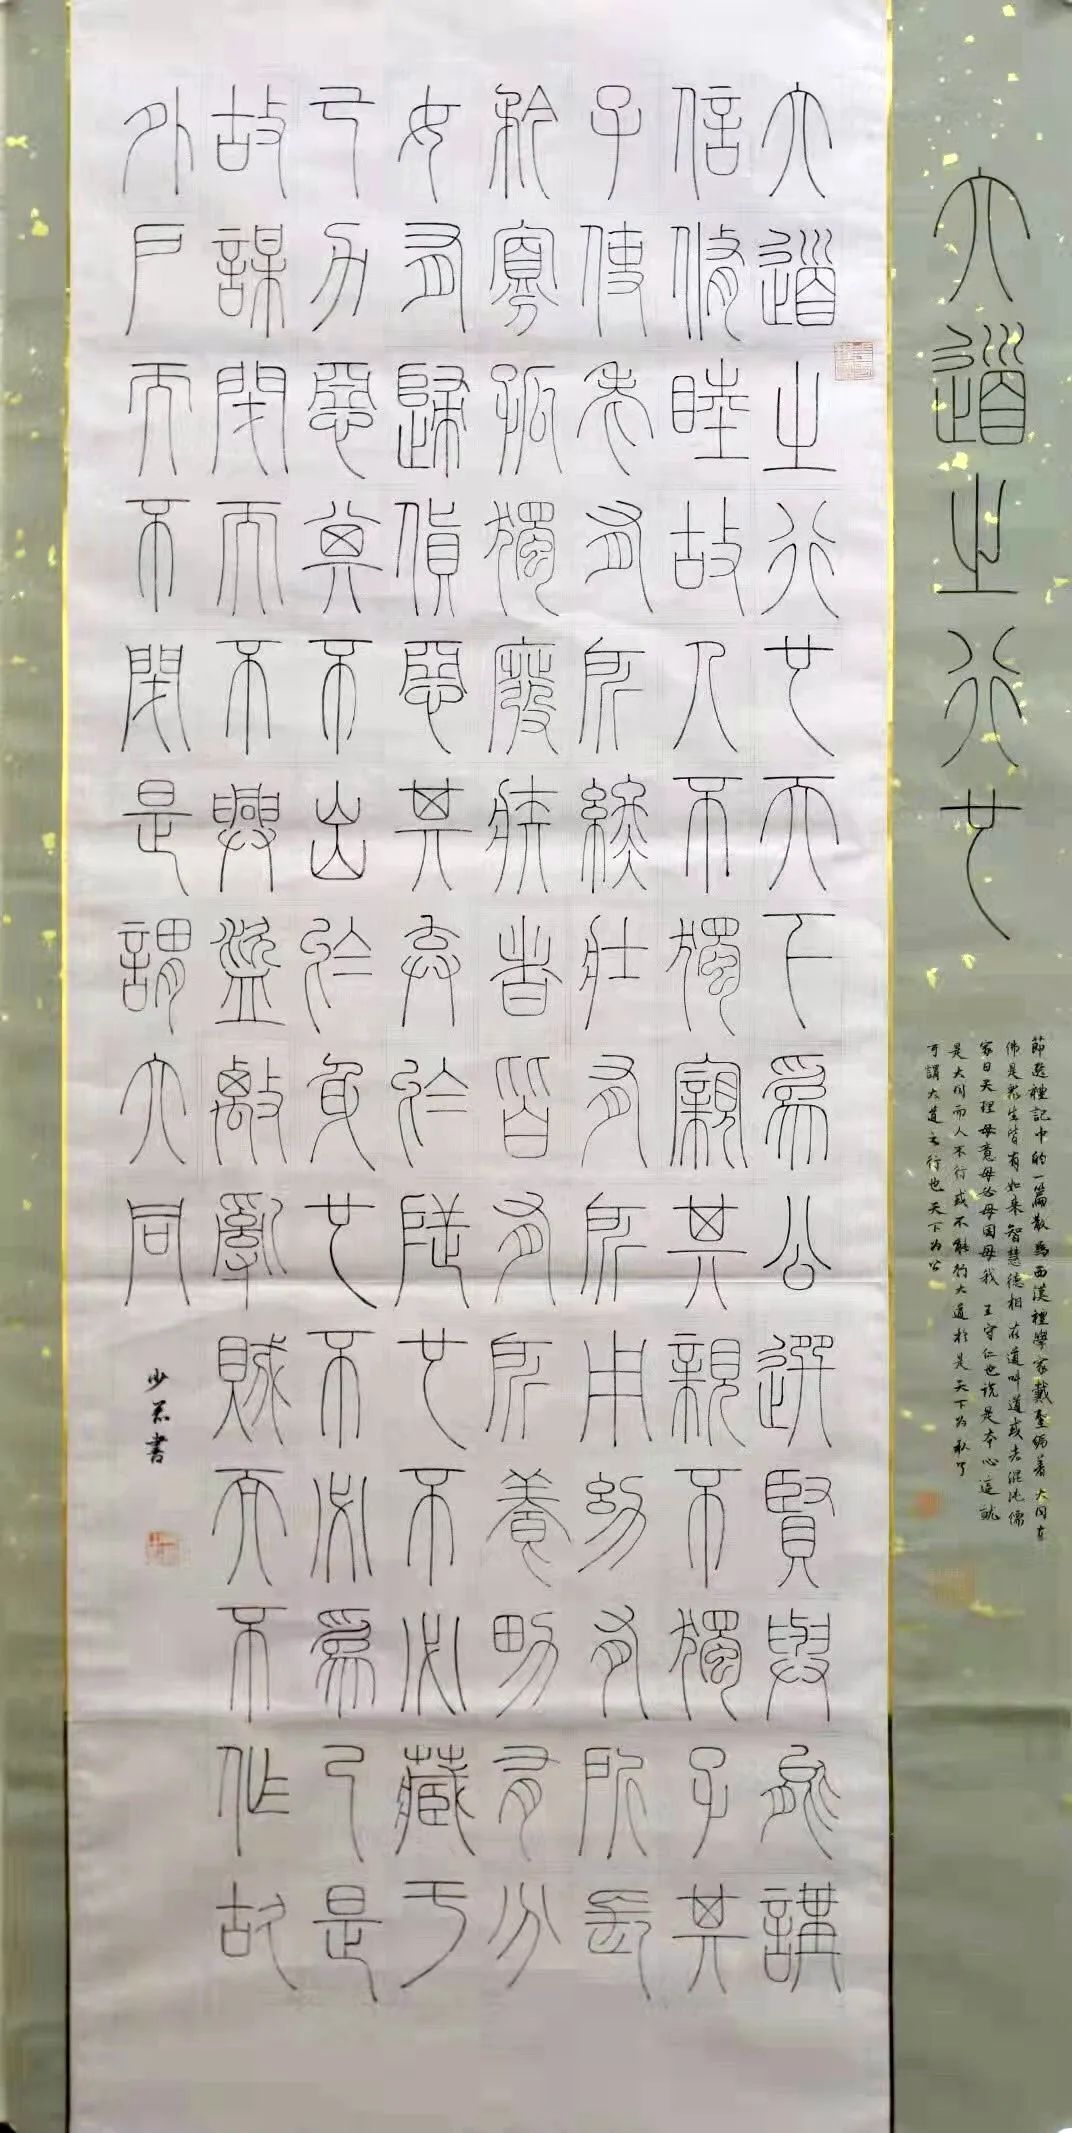 大道之行也
節選禮記中的一篇散為西漢禮學家戴聖編著 大同在
佛是眾生皆有如來智慧德相 在道叫道或者混沌儒
家曰天理毋意毋必毋固毋我 王守仁也說是本心這就
是大同而人不行或不能行大道於是天下為私了
可謂大道之行也天下為公
大道之行也天下為公選賢與能講
信脩睦故人不獨親其親不獨子其
子使老有所終壯有所用幼有所長
矜寡孤獨廢疾者皆有所養男有分
女有歸貨惡其弃於地也不必藏于
己力惡其不出於身也不必為己是
故謀閉而不興盜竊亂賊而不作故
外戶而不閉是謂大同
少書